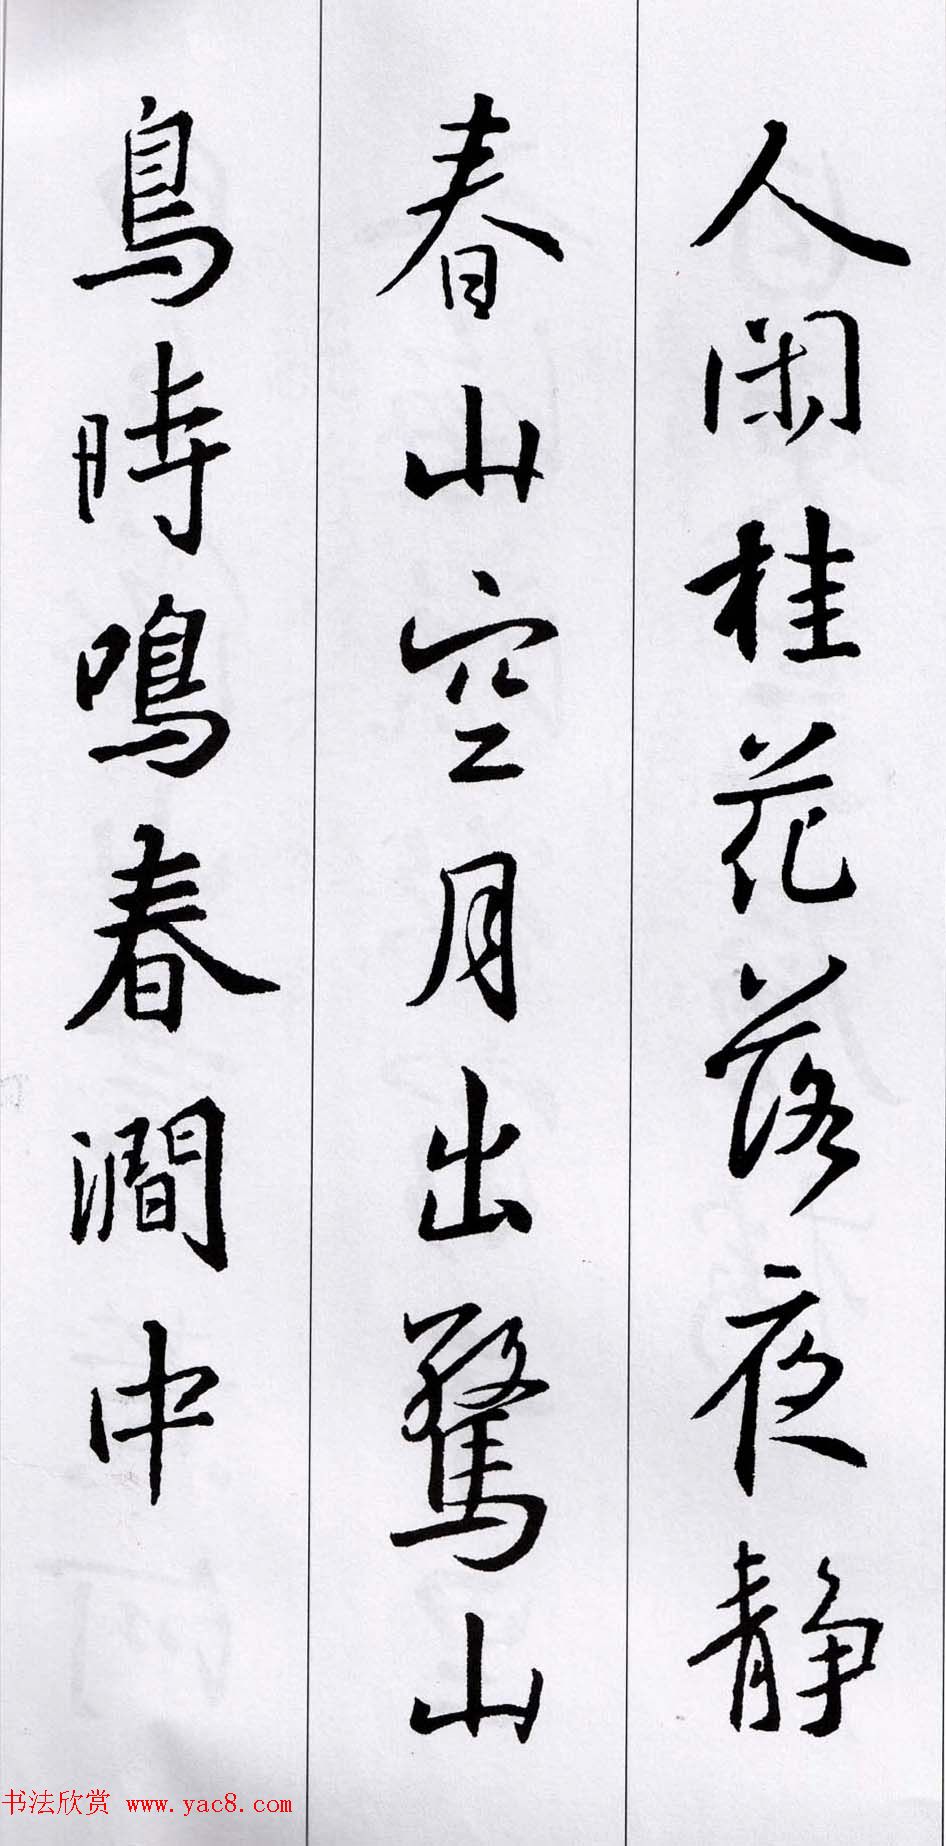 人闲桂花落夜静
春山空月出驚山
鳥時鳴春澗中
书法欣赏 www.yac8.com